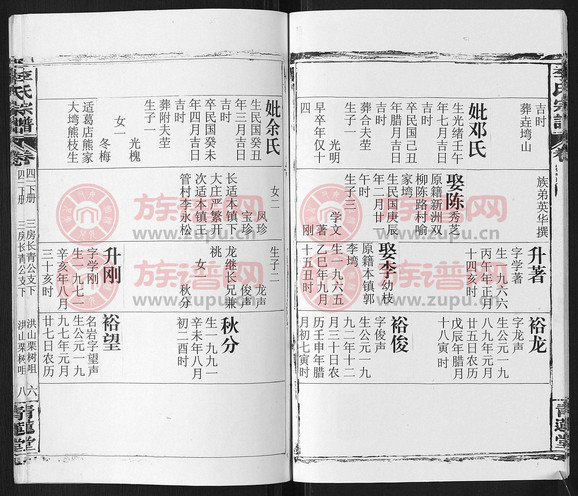 李氏宗谱
吉时
葬垚塆山
妣邓氏
生光绪壬午
年七月吉时
卒民国己丑
年腊月吉日
葬合夫茔
生子一
光明
早卒年仅十
四
妣余氏
生民国癸丑
年三月吉日
吉时
卒民国癸未
年四月吉日
吉时
葬附夫茔
生子一
光槐
女一
冬梅
适葛店熊家
大塆熊枝生
族弟英华撰
娶陈秀芝
原籍新洲双
柳陈路村喻
家塆
生民国庚辰
年二月廿
吉时
生子三
学文
刚
著
女二
凤珍
宝珍
长适本镇下
大庄严繁开
次适本镇王
管村李永松
升著
字学著
生一九六六
丙午年正月
十四亥时
娶李幼枝
原籍本镇郭
李塆
生一九六五
乙巳年九月
十五丑时
生子二
龙声
俊声
龙继长兄兼
桃
女一
秋分
升刚
字学刚
生一九七一
辛亥年八月
三十亥时
裕龙
字龙声
生公元一九
八九年元月
廿五日农历
戊辰年腊月
十八寅时
裕俊
字俊声
生公元一九
九二年十二
月三十日农
历壬申年腊
月初七寅时
秋分
生一九九一
辛未年八月
初二酉时
裕望
名岩字望声
生公元一九
九七年元月
廿七日农历
卷
四一下册
四二下册
三房长青公支下
三房长青公支下
洪山栗树咀
洪山栗树咀
六
八
青莲堂
青莲堂
族谱网
www.zupu.cn